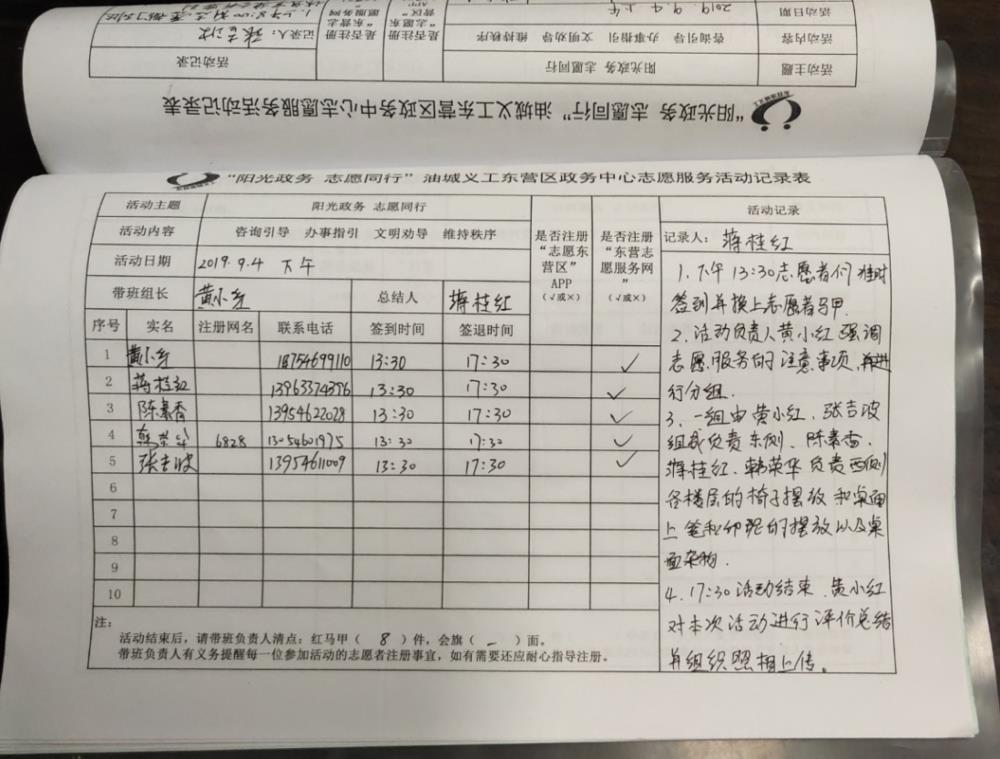 活动主题 阳光政务 志愿同行 活动记录
活动内容 咨询引导 办事指引 文明劝导 维持秩序
活动日期 2019.9.4 上午
记录人：张吉波
“阳光政务 志愿同行”油城义工东营区政务中心志愿服务活动记录表
“阳光政务 志愿同行”油城义工东营区政务中心志愿服务活动记录表
活动主题 阳光政务 志愿同行
活动内容 咨询引导 办事指引 文明劝导 维持秩序
活动日期 2019.9.4 下午
带班组长 黄小红 总结人 蒋桂红
是否注册“志愿东营区”APP（√或×）
是否注册“东营志愿服务网”（√或×）
序号 实名 注册网名 联系电话 签到时间 签退时间
1 黄小红 18754699110 13:30 17:30 √
2 蒋桂红 13963374376 13:30 17:30 √
3 陈素香 13954622028 13:30 17:30 √
4 韩荣华 6828 13054601975 13:30 17:30 √
5 张吉波 13954611009 13:30 17:30 √
6
7
8
9
10
注：
活动结束后，请带班负责人清点：红马甲（ 8 ）件，会旗（ - ）面。
带班负责人有义务提醒每一位参加活动的志愿者注册事宜，如有需要还应耐心指导注册。
活动记录
记录人：蒋桂红
1、下午13:30志愿者们准时
签到并换上志愿者马甲.
2、活动负责人黄小红强调
志愿服务的注意事项,并进
行分组.
3、一组由黄小红、张吉波
组成负责东侧、陈素香、
蒋桂红、韩荣华负责西侧
各楼层的椅子摆放和桌面
上笔和印泥的摆放以及桌
面杂物.
4、17:30活动结束、黄小红
对本次活动进行评价总结
并组织照相上传。